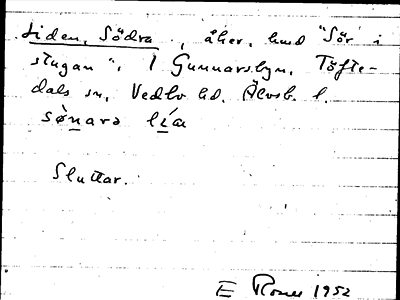 Liden, Södra, åker, hmd "Sör i
stugan", 1 Gunnarsbyn, Töfte-
dals sn, Vedbo hd. Älvsb. l.
sø̀narə lía
Sluttar.
E Rosell 1952